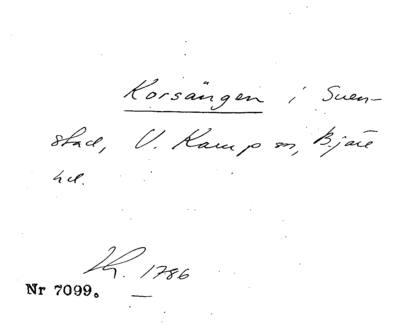 Korsängen i Svenstad, V. Karup sn, Bjäre
hd.
Kh. 1786
Nr 7099.